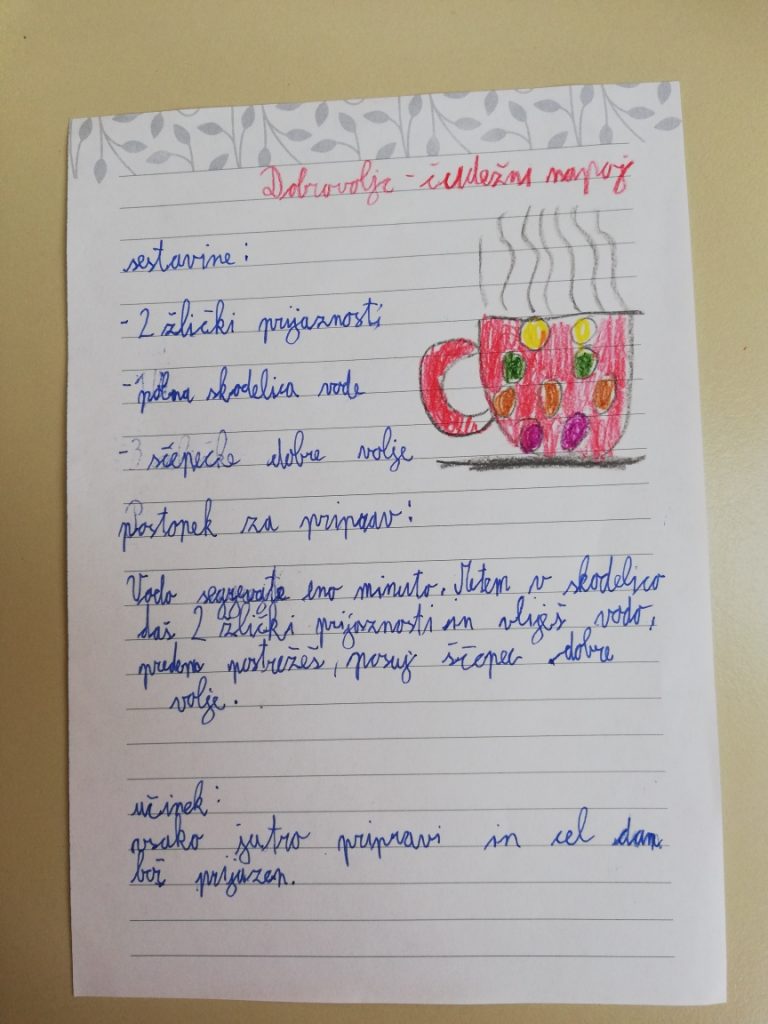 Dobrovolje - čudežni napoj
sestavine:
- 2 žlički prijaznosti
- polna skodelica vode
- 3 ščepečke dobre volje
Postopek za pripravo:
Vodo segrevate eno minuto. Potem v skodelico
daš 2 žlički prijaznosti in vliješ vodo,
preden postrežeš, posuj ščepec dobre
volje.
učinek:
vsako jutro pripravi in cel dan
boš prijazen.